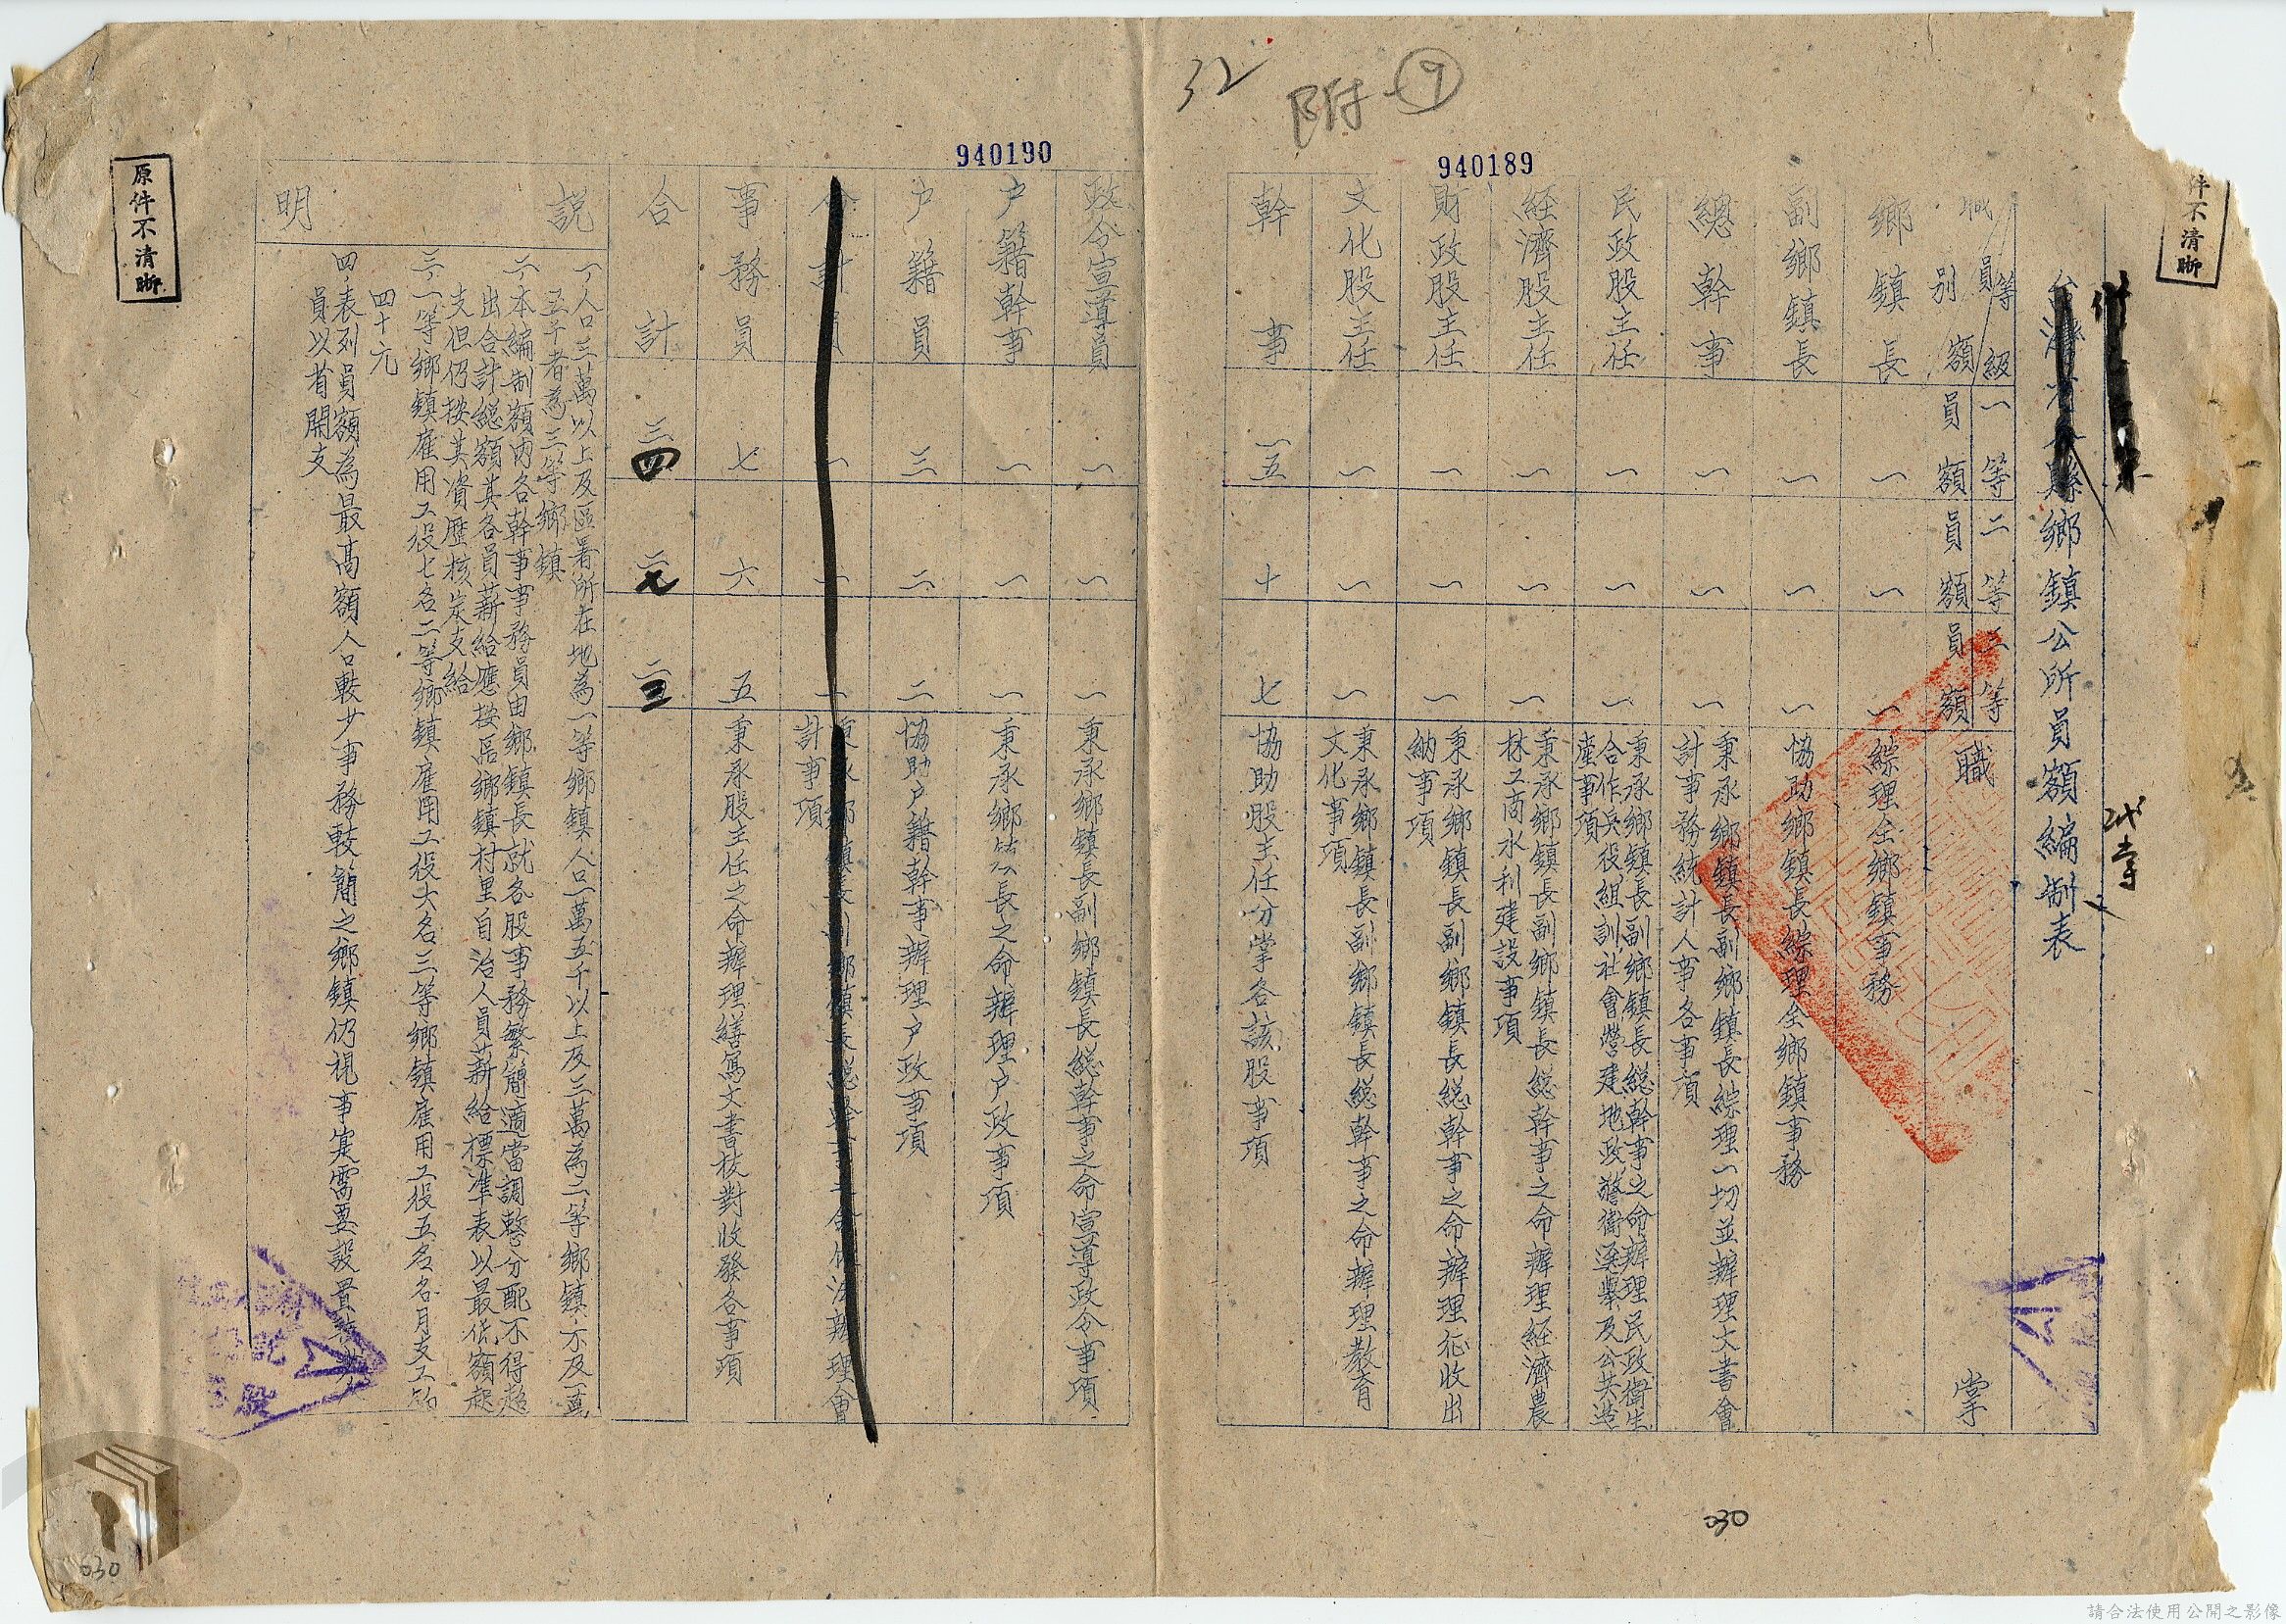 32
附⑨
940189
940190
件不清晰
原件不清晰
鄉鎮公所員額編制表
職別 員額 等級
一等員額
二等員額
三等員額
職掌
鄉鎮長 一 一 一 綜理全鄉鎮事務
副鄉鎮長 一 一 一 協助鄉鎮長綜理全鄉鎮事務
總幹事 一 一 一 秉承鄉鎮長副鄉鎮長綜理一切並辦理文書會計事務統計人事各事項
民政股主任 一 一 一 秉承鄉鎮長副鄉鎮長総幹事之命辦理民政衛生合作兵役組訓社會營建地政警衛選舉及公共造產事項
経濟股主任 一 一 一 秉承鄉鎮長副鄉鎮長総幹事之命辦理経濟農林工商水利建設事項
財政股主任 一 一 一 秉承鄉鎮長副鄉鎮長総幹事之命辦理征收出納事項
文化股主任 一 一 一 秉承鄉鎮長副鄉鎮長総幹事之命辦理教育文化事項
幹事 一五 十 七 協助股主任分掌各該股事項
政令宣導員 一 一 一 秉承鄉鎮長副鄉鎮長総幹事之命宣導政令事項
户籍幹事 一 一 一 秉承鄉鎮長之命辦理户政事項
户籍員 三 二 二 協助户籍幹事辦理户政事項
計員 一 一 一 秉承鄉鎮長副鄉鎮長総幹事之命依法辦理會計事項
事務員 七 六 五 秉承股主任之命辦理繕寫文書校對收發各事項
合計 三四 二七 二三
說明
一、人口三萬以上及區署所在地為一等鄉鎮人口一萬五千以上及三萬為二等鄉鎮不及一萬
五千者為三等鄉鎮
二、本編制額内各幹事事務員由鄉鎮長就各股事務繁簡適當調整分配不得超
出合計総額其各員薪給應按區鄉鎮村里自治人員薪給標準表以最低額起
支但仍按其資歷核定支給
三、一等鄉鎮雇用工役七名二等鄉鎮雇用工役六名三等鄉鎮雇用工役五名各月支工餉
四十元
四、表列員額為最高額人口較少事務較簡之鄉鎮仍視事實需要設置
員以省開支
030
030
請合法使用公開之影像